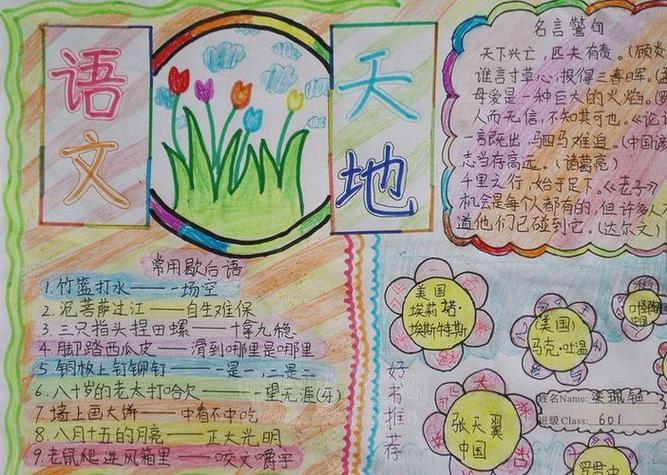 语文
天地
名言警句
天下兴亡，匹夫有责。(顾炎
谁言寸草心，报得三春晖。(孟
母爱是一种巨大的火焰。(罗
人而无信，不知其可也。《论语
一言既出，马四马难追。(中国谚
志当存高远。(诸葛亮)
千里之行，始于足下。《老子》
机会是每个人都有的，但许多人
道他们已碰到它。(达尔文)
常用歇后语
1.竹篮打水——一场空
2.泥菩萨过江——自生难保
3.三只指头捏田螺——十拿九稳
4.脚踏西瓜皮——滑到哪里是哪里
5.钢板上钉铆钉——一是一,二是二
6.八十岁的老太打哈欠——一望无涯(牙)
7.墙上画大饼——中看不中吃
8.八月十五的月亮——正大光明
9.老鼠爬进风箱里——咬文嚼字
好书推荐
美国
埃莉塔·
埃斯特斯
(美国)
马克·吐温
中国
张天翼
中国
姓名Name:
班级 Class: 601